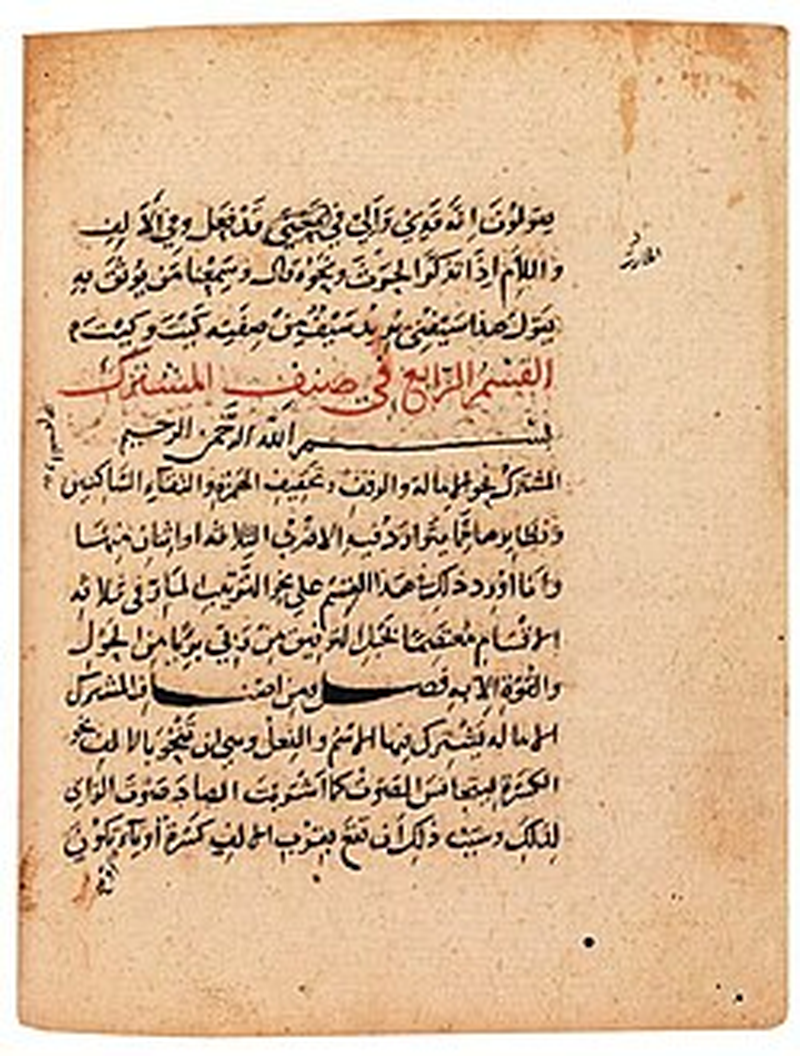 يقولون انه قدي وألي في قد فعل وفي الألف
واللام اذا تذكر الحرث ونحوه قال وسمعنا من يوثق به
يقول هذا سيفني يريد سيف من صفته كيت وكيت
القسم الرابع في صنف المشترك
بسم الله الرحمن الرحيم
المشترك نحو الامالة والوقف وتخفيف الهمزة والتقاء الساكنين
ونظايرها مما يتوارد فيه الاضرب الثلاثة او اثنان منها
وانا اورد ذلك في هذا القسم على نحو الترتيب المار في ثلاثة
الاقسام معتصما بحبل التوفيق من ربي بريا من الحول
والقوة الا به فصل ومن اصناف المشترك
الامالة يشترك فيها الاسم والفعل وهي ان تنحو بالالف نحو
الكسرة ليتجانس الصوت كما اشربت الصاد صوت الزاي
لذلك وسبب ذلك أن تقع بقرب الالف كسرة أو ياء